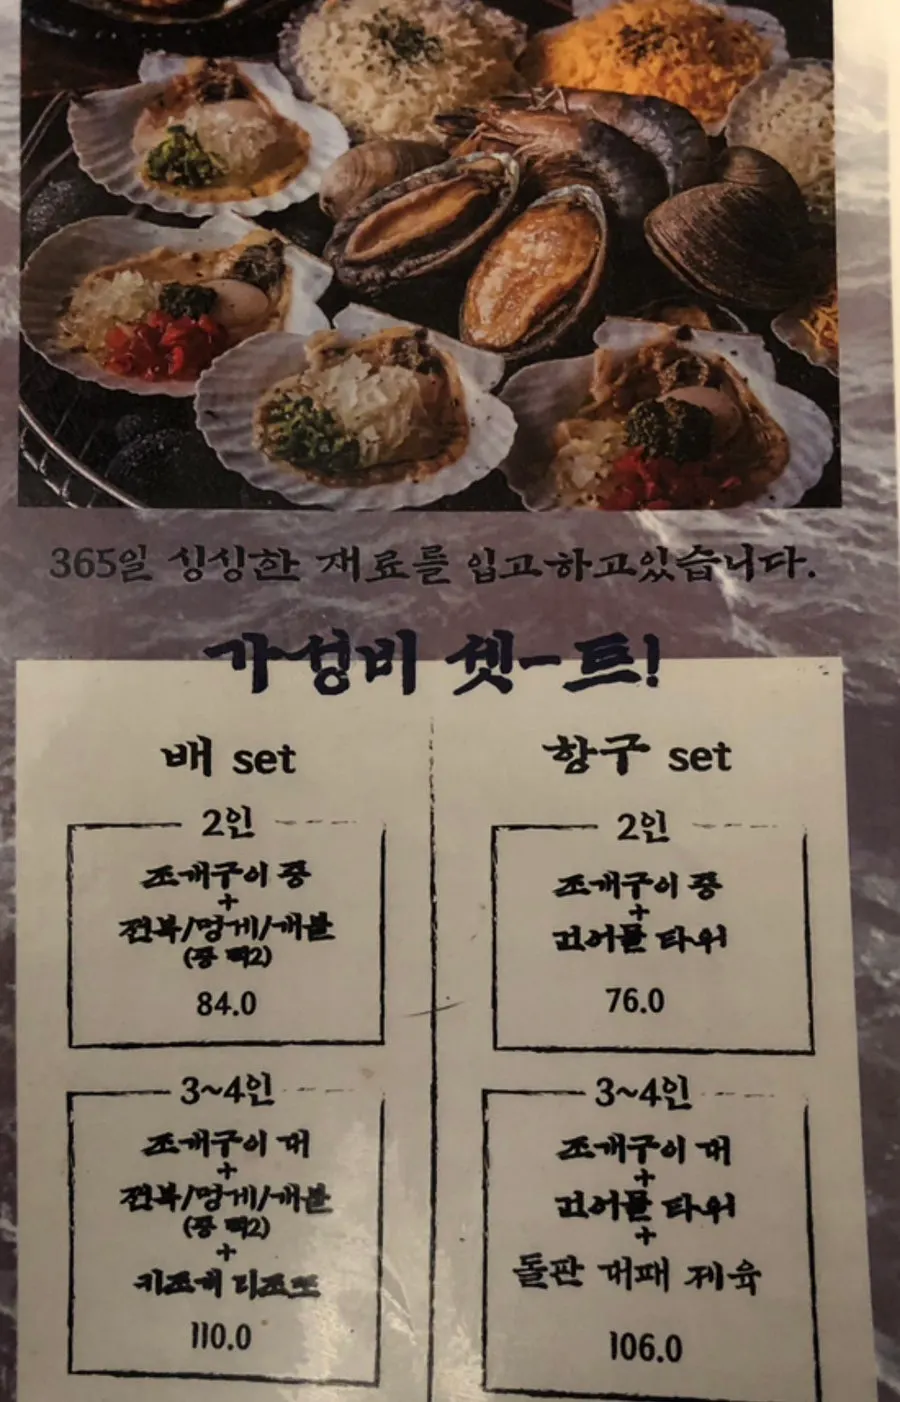 365일 싱싱한 재료를 입고하고있습니다.
가성비 셋-트!
배 set
2인
조개구이 중
+
전복/멍게/개불
(중 택2)
84.0
3~4인
조개구이 대
+
전복/멍게/개불
(중 택2)
+
키조개 리조또
110.0
항구 set
2인
조개구이 중
+
타워
76.0
3~4인
조개구이 대
+
타워
+
돌판 대패 제육
106.0